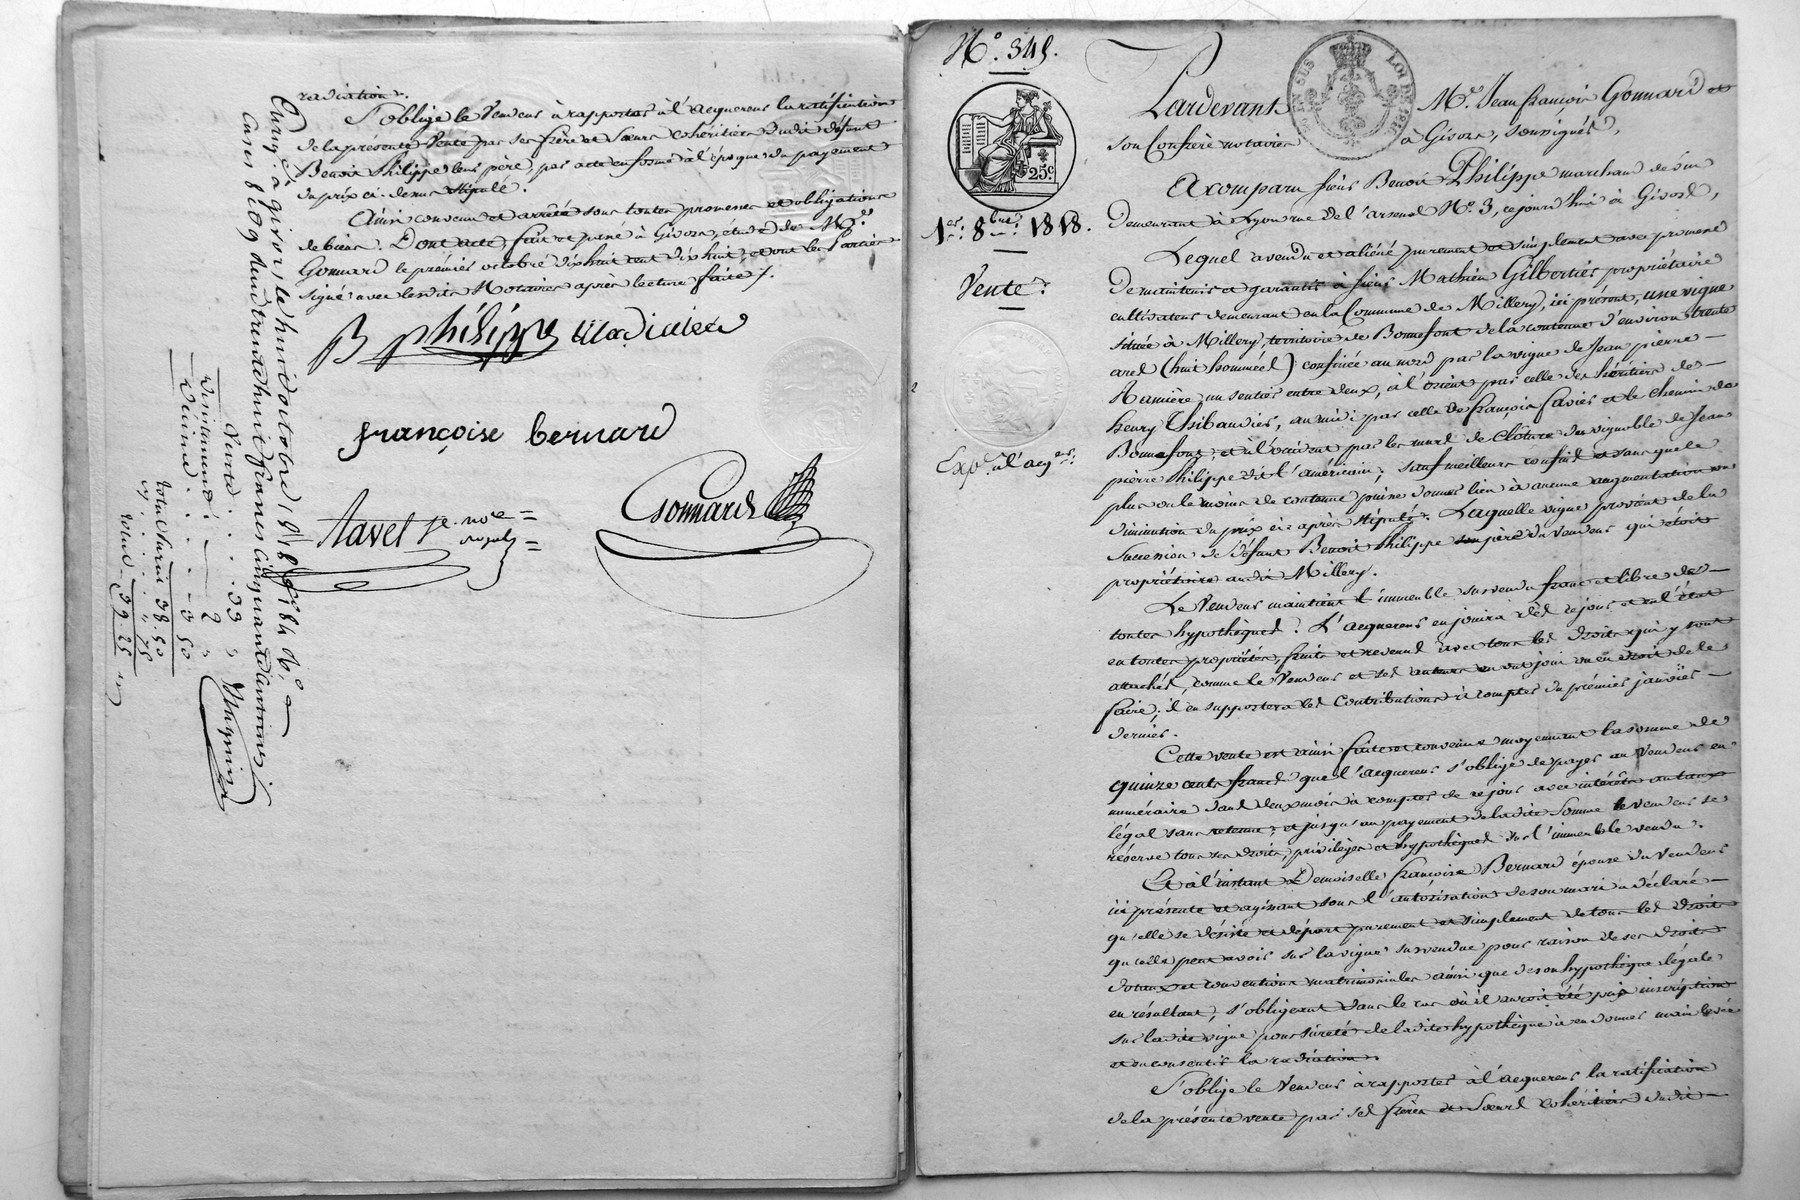 radiation.
S'oblige le Vendeur à rapporter à l'acquereur la ratification
de la présente Vente par ses frère et Sœurs cohéritiers dudit défunt
Benoit Philippe leur père, par acte en forme à l'époque du payement
du prix ci-dessus stipulé.
Ainsi convenu et arrêté sous toutes promesses et obligations
de biens. Dont acte, fait et passé à Givors, étude de Me
Gonnard le premier octobre dix huit cent dix huit, et ont les Parties
signé avec lesdits Notaires après lecture faite.
B philippe
françoise bernard
tavel
nre
royal
Gonnard
Enreg. à givors, le huit octobre 1818 fo 184 Vo
cases 8 et 9 reçu trente huit francs cinquante centimes
Vente . . . 33 "
2 "
Décime . . . 3 50
total 38. 50
" 75
total 39. 25
No. 345.
25c.
1er. 8bre. 1818.
Vente.
Exp. à l'acqr.
LOI DE 1816
Pardevant Me. Jean françois Gonnard et
son Confrère notaires à Givors, soussignés,
A comparu sieur Benoit Philippe marchand de vin
demeurant à Lyon rue de l'arsenal No. 3, ce jourd'hui à Givors,
Lequel a vendu et aliéné purement et simplement avec promesse
de maintenir et garantir à sieur Mathieu Gilbertier propriétaire
cultivateur demeurant en la Commune de Millery, ici présent, une vigne
située à Millery, territoire de Bonnefont de la contenue d'environ trente
ares (huit hommées) confinée au nord par la vigne de Jean pierre
Ramière un sentier entre deux, à l'orient par celle des héritiers de
henry Thibaudier, au midi par celle de françois favier et le chemin de
Bonnefont, et à l'occident par les murs de clôture du vignoble de Jean
pierre Philippe dit l'américain, sauf meilleurs confins et sans que le
plus ou le moins de contenue puisse donner lieu à aucune augmentation ou
diminution du prix ci-après stipulé. Laquelle vigne provient de la
succession de défunt Benoit Philippe père du Vendeur qui étoit
propriétaire audit Millery.
Le Vendeur maintient l'immeuble susvendu franc et libre de
toutes hypothèques. L'acquereur en jouira dès ce jour et en l'état
en toutes propriétés, fruits et revenus avec tous les droits qui y sont
attachés, comme le Vendeur et ses auteurs en ont joui ou eu droit de le
faire; il en supportera les contributions à compter du premier janvier
dernier.
Cette vente est ainsi faite et convenue moyennant la somme de
quinze cents francs que l'acquereur s'oblige de payer au Vendeur en
numéraire dans deux mois à compter de ce jour avec intérêts au taux
légal sans retenue, et jusqu'au payement de ladite somme le vendeur se
réserve tous ses droits, privilèges et hypothèques sur l'immeuble vendu.
Et à l'instant Demoiselle françoise Bernard épouse du Vendeur
ici présente et agissant sous l'autorisation de son mari a déclaré
qu'elle se désiste et départ purement et simplement de tous les droits
qu'elle peut avoir sur la vigne susvendue pour raison de ses droits
dotaux et conventions matrimoniales ainsi que de son hypothèque légale
en résultant, s'obligeant dans le cas où il auroit été pris inscription
sur ladite vigne pour sûreté de ladite hypothèque à en donner main levée
et en consentir la radiation.
S'oblige le Vendeur à rapporter à l'acquereur la ratification
de la présente vente par ses frère et Sœurs cohéritiers dudit